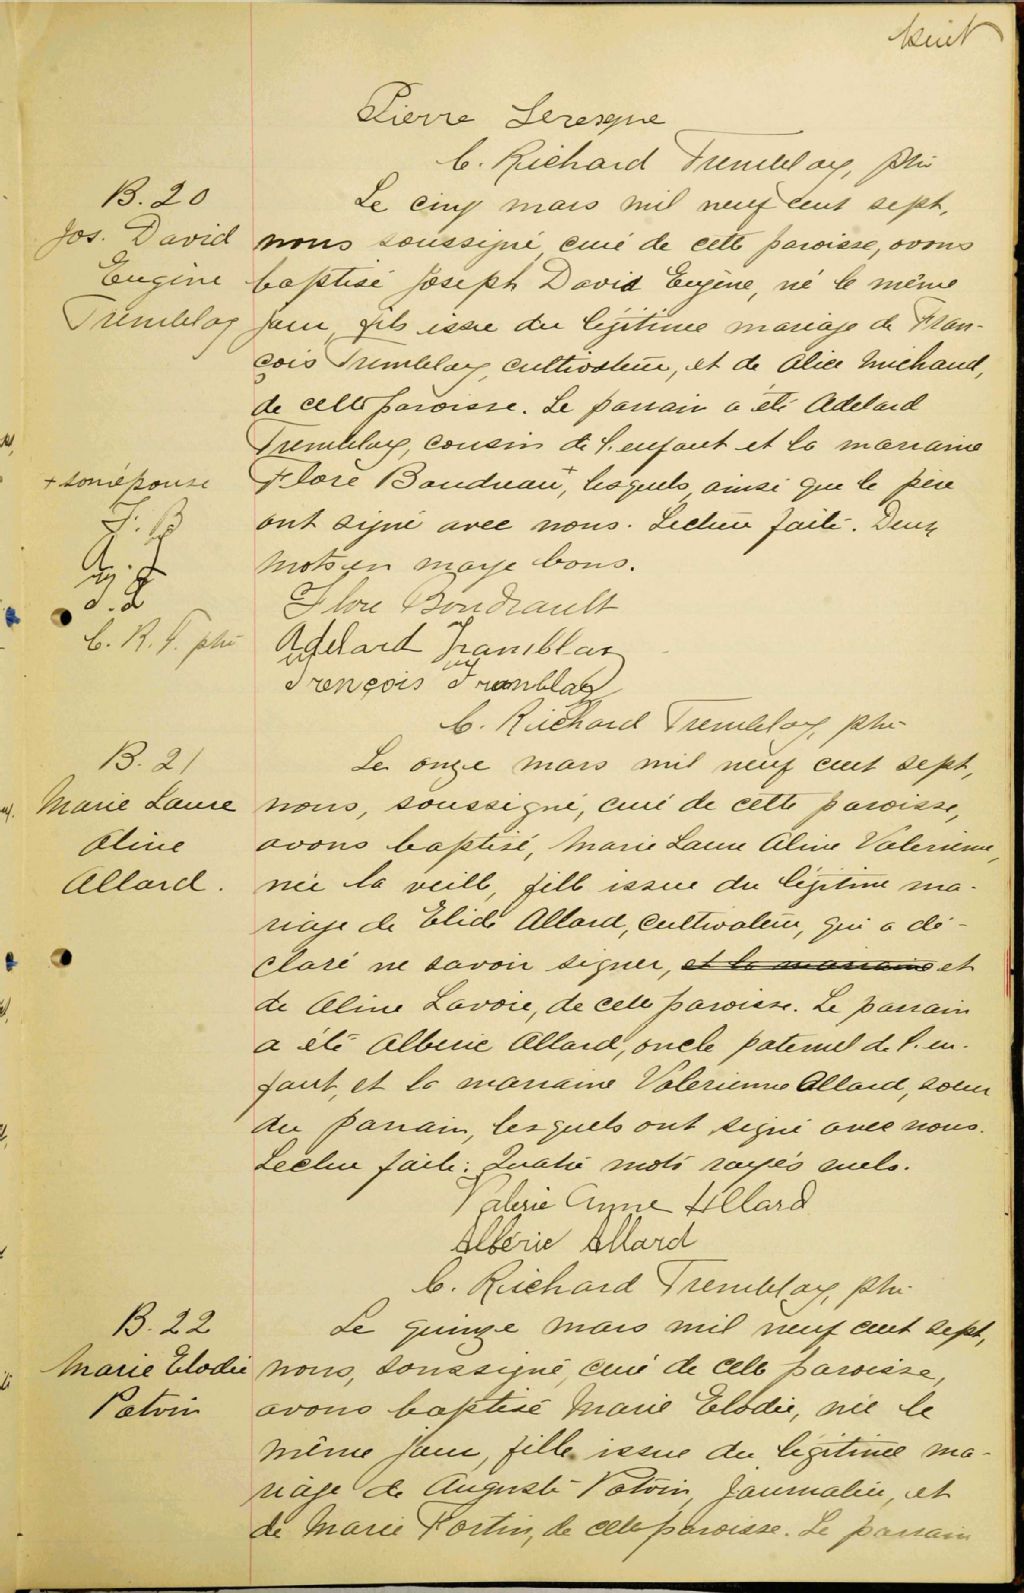 huit
Pierre Levesque
C. Richard Tremblay, ptre
B. 20
Jos. David
Eugène
Tremblay
Le cinq mars mil neuf cent sept,
nous soussigné, curé de cette paroisse, avons
baptisé Joseph David Eugène, né le même
jour, fils issu du légitime mariage de Fran-
çois Tremblay, cultivateur, et de Alice Michaud,
de cette paroisse. Le parrain a été Adelard
Tremblay, cousin de l'enfant et la marraine
Flore Boudreau +, lesquels, ainsi que le père
ont signé avec nous. Lecture faite. Deux
mots en marge bons.
+ son épouse
F. B
A. T
F. T
C. R. T. ptre
Flore Boudrault
Adelard Tramblay
François Tramblay
C. Richard Tremblay, ptre
B. 21
Marie Laure
Aline
Allard.
Le onze mars mil neuf cent sept,
nous, soussigné, curé de cette paroisse,
avons baptisé, Marie Laure Aline Valerienne,
née la veille, fille issue du légitime ma-
riage de Elide Allard, cultivateur, qui a dé-
claré ne savoir signer, et la marraine et
de Aline Lavoie, de cette paroisse. Le parrain
a été Alberic Allard, oncle paternel de l'en-
fant, et la marraine Valerienne Allard, soeur
du parrain, lesquels ont signé avec nous.
Lecture faite. Quatre mots rayés nuls.
Valerie Anne Allard
Albéric Allard
C. Richard Tremblay, ptre
B. 22
Marie Elodie
Potvin
Le quinze mars mil neuf cent sept,
nous, soussigné, curé de cette paroisse,
avons baptisé Marie Elodie, née le
même jour, fille issue du légitime ma-
riage de Auguste Potvin, journalier, et
de Marie Fortin, de cette paroisse. Le parrain